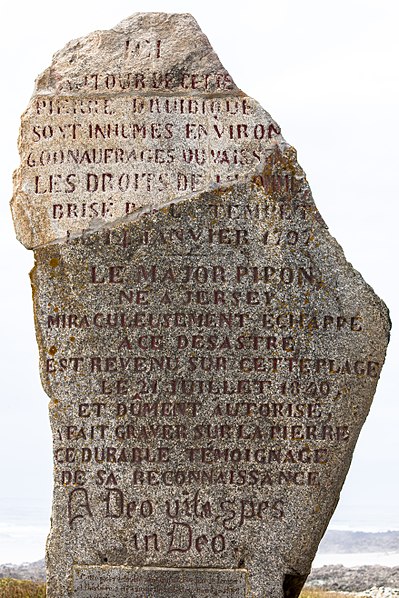 ICI
AUTOUR DE CETTE
PIERRE DRUIDIQUE
SONT INHUMES ENVIRON
600 NAUFRAGES DU VAISSEAU
LES DROITS DE L'HOMME
BRISE PAR LA TEMPETE
LE 14 JANVIER 1797
LE MAJOR PIPON,
NE A JERSEY,
MIRACULEUSEMENT ECHAPPE
A CE DESASTRE,
EST REVENU SUR CETTE PLAGE
LE 21 JUILLET 1840,
ET DÛMENT AUTORISE,
A FAIT GRAVER SUR LA PIERRE
CE DURABLE TEMOIGNAGE
DE SA RECONNAISSANCE
A Deo vita spes
in Deo.